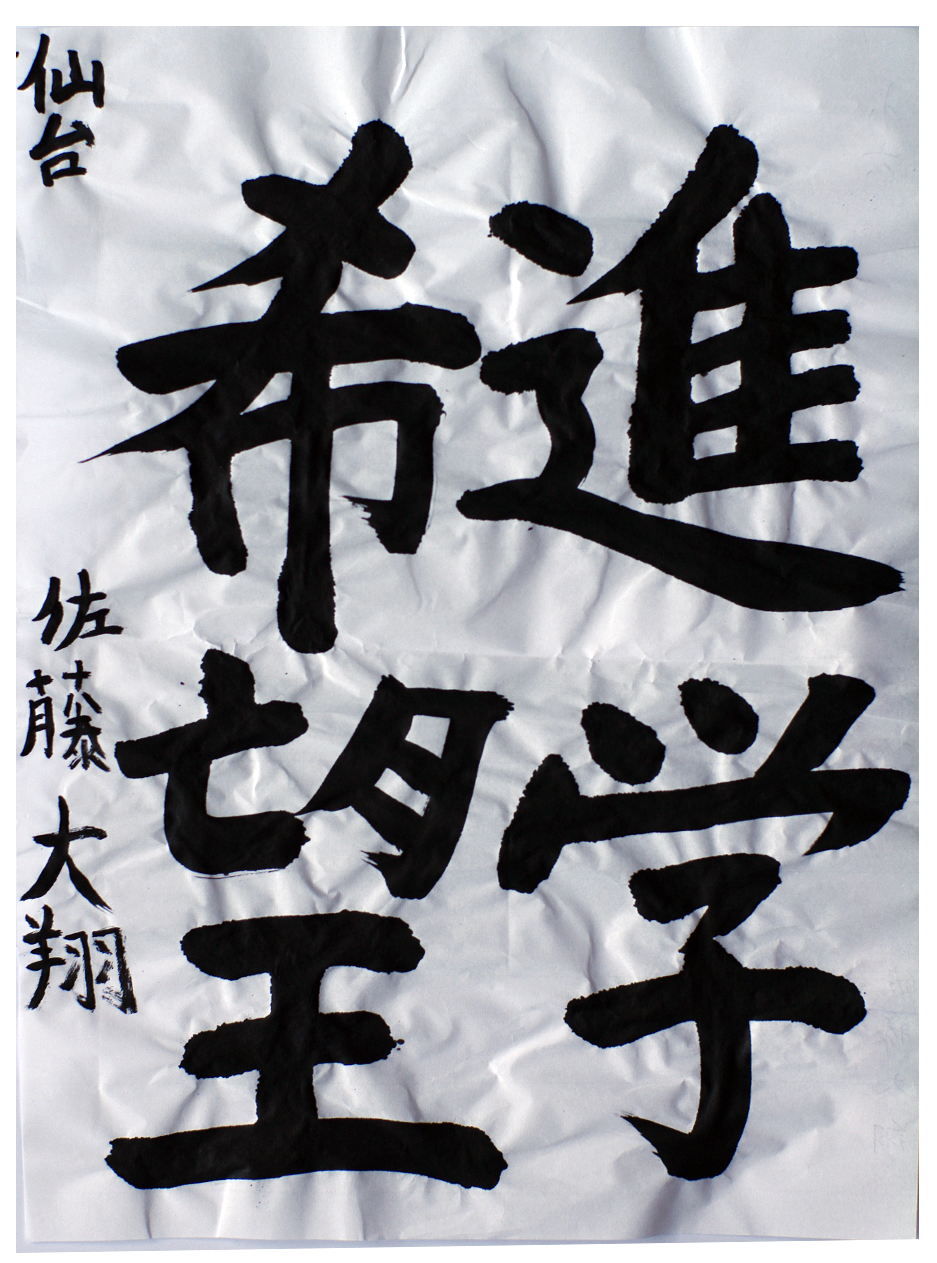 進学
希望
仙台 佐藤大翔